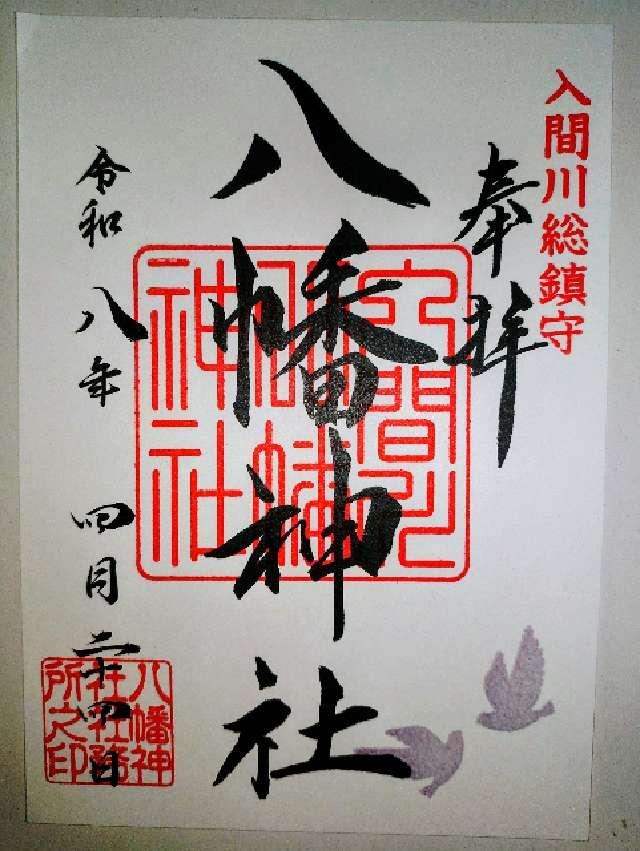 入間川総鎮守
奉拝
八幡神社
令和八年四月二十四日
八幡神
社社務
所之印